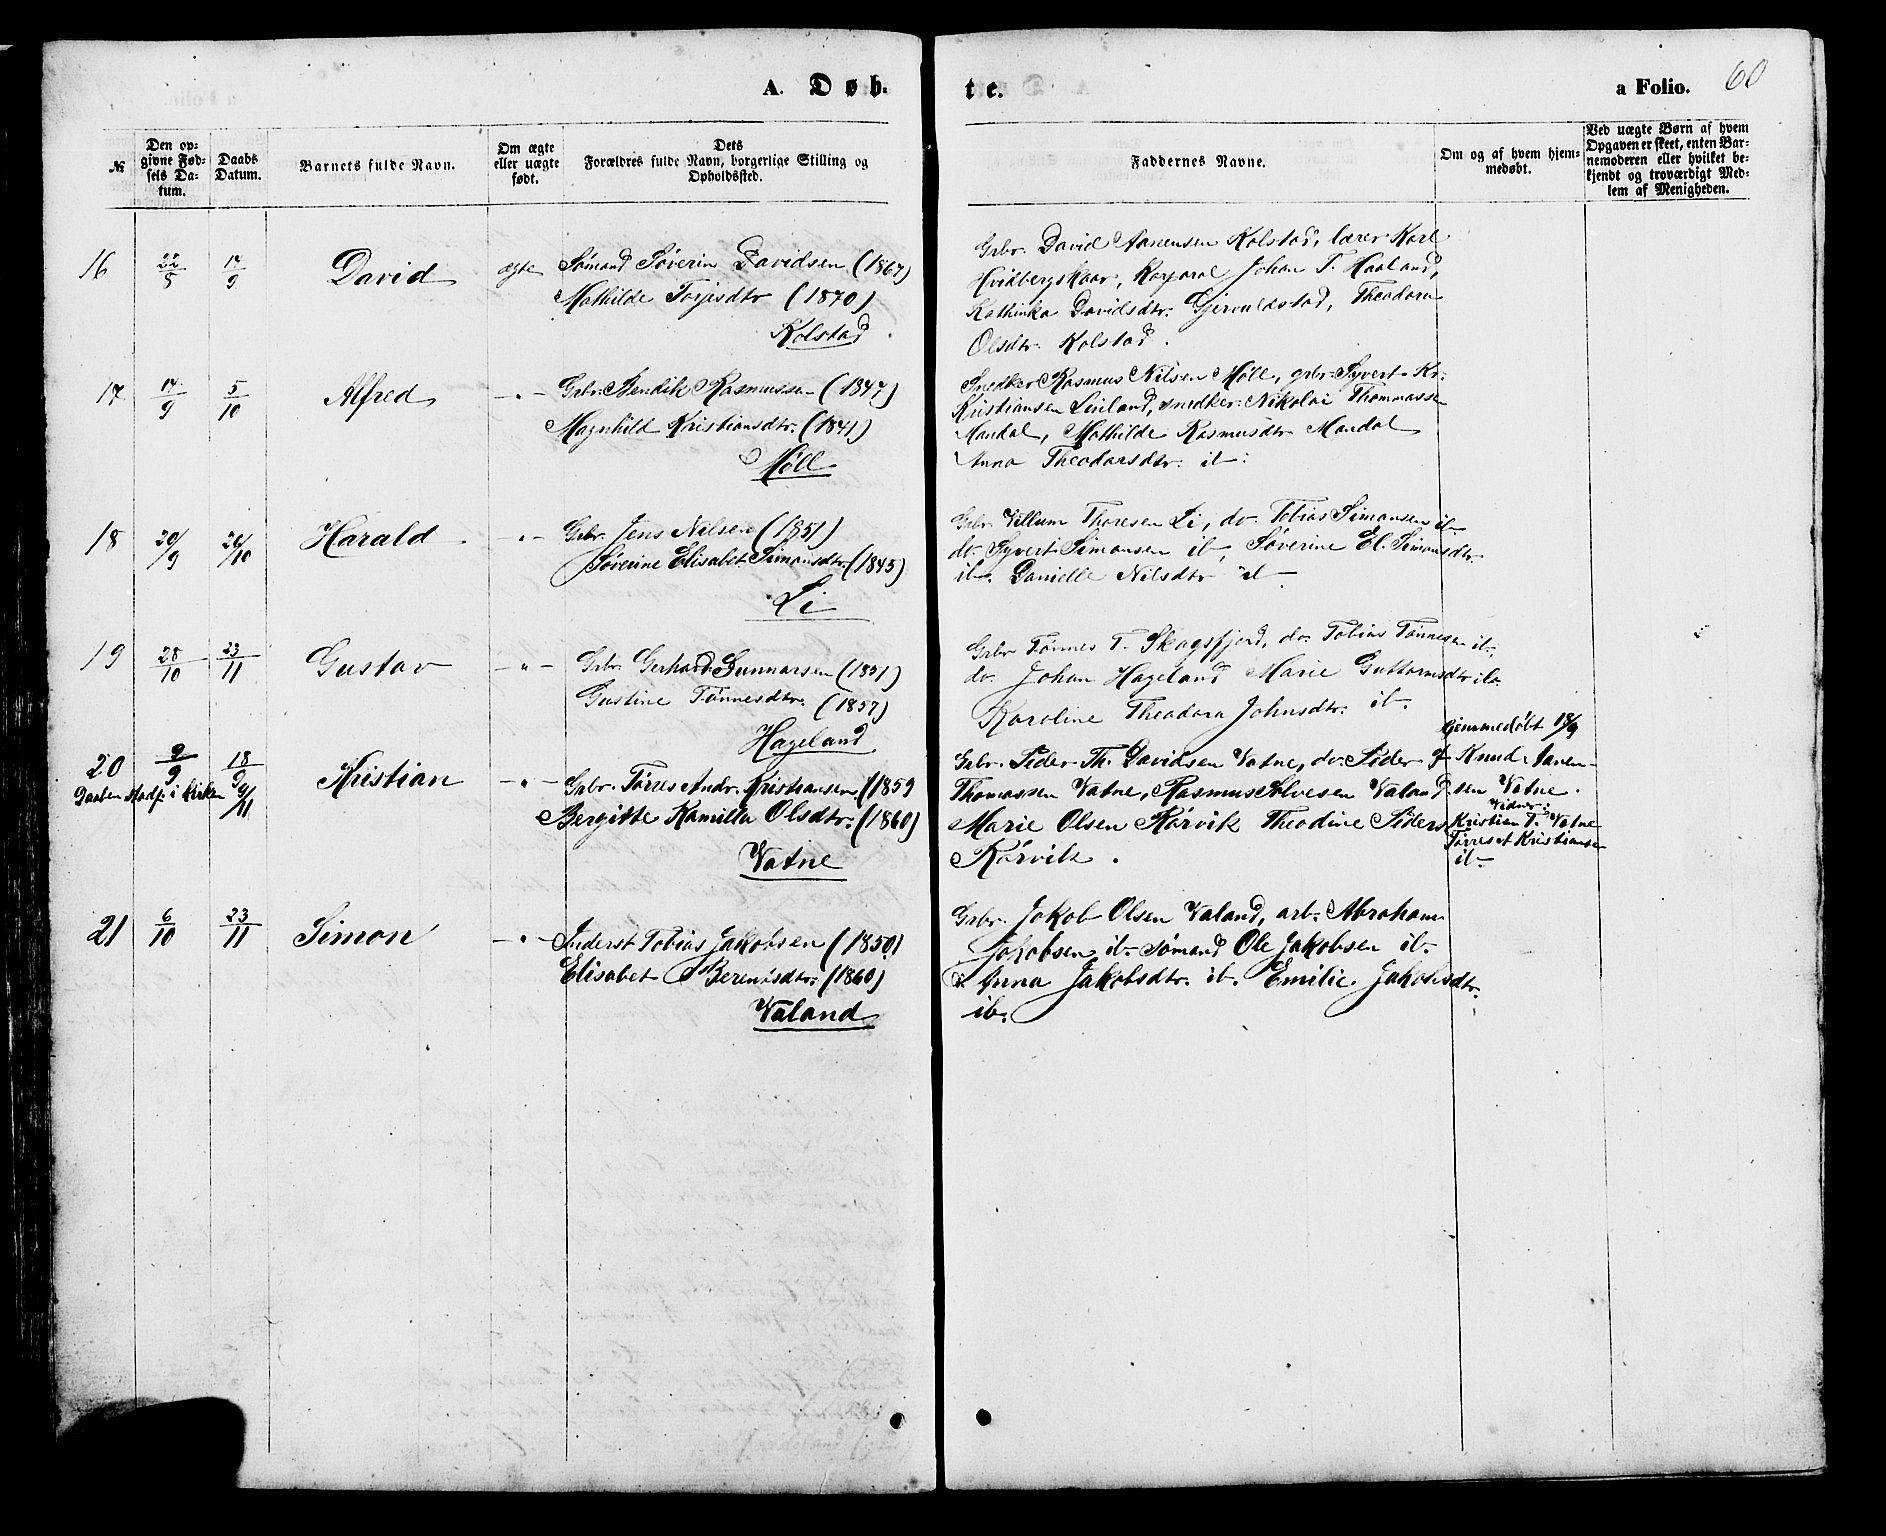 A. Døb-
te.
a Folio. 60
№
Den op-
givne Fød-
sels Da-
tum.
Daabs
Datum.
Barnets fulde Navn.
Om ægte
eller uægte
født.
Dets
Forældres fulde Navn, borgerlige Stilling og
Opholdssted.
Faddernes Navne.
Om og af hvem hjem-
medøbt.
Ved uægte Børn af hvem
Opgaven er skeet, enten Bar-
nemoderen eller hvilket be-
kjendt og troværdigt Med-
lem af Menigheden.
16 22/5 14/9 David ægte Sømand Søverin Davidsen (1867)
Mathilde Torjisdtr (1870)
Kolstad.
Grbr. David Aanensen Kolstad, lærer Karl
Hvidbergskaar, Korporal Johan T. Haaland,
Kathinka Davidsdtr. Gjervoldstad, Theodora
Olsdtr. Kolstad.
17 14/9 5/10 Alfred -"- Grbr. Bendik Rasmussen (1847)
Magnhild Kristiansdtr. (1841)
Møll
Snedker Rasmus Nilsen Møll, grbr. Syvert Kr.
Kristiansen Linland, snedker Nikolai Thommasse
Mandal, Mathilde Rasmusdtr Mandal
Anna Theodorsdtr. ib:
18 20/9 26/10 Harald -"- Grbr. Jens Nilsen (1851)
Søverine Elisabet Simonsdtr. (1845)
Li
Grbr. Villum Thoresen Li, do. Tobias Simonsen ib.
do. Syvert Simonsen ib, Søverine El. Simonsdtr.
ib. Danielle Nilsdtr ib.
19 28/10 23/11 Gustav -"- Grbr. Gerhard Gunnarsen (1851)
Gustine Tønnesdtr. (1857)
Hageland
Grbr Tønnes T. Skogsfjord, do. Tobias Tønnesen ib.
do. Johan Hageland Marie Guttormsdtr ib.
Karoline Theodora Johnsdtr. ib.
20 9/9 18/9 Kristian -"- Grbr. Tørres Andr. Kristiansen (1859
Daaben stadf. i kirken 9/11
Bergitte Kamilla Olsdtr. (1860)
Vatne
Grbr. Peder Th. Davidsen Vatne, do. Peder
Thomassen Vatne, Rasmus Salvesen Valand
Marie Olsen Rørvik Theodine Peders
Rørvik.
Hjemmedøbt 18/9
af Knud Aanen-
sen Vatne.
Vidner:
Kristian T. Vatne
Tørres A Kristiansen
ib.
21 6/10 23/11 Simon -"- Inderst Tobias Jakobsen (1850)
Elisabet Berentsdtr. (1860)
Valand
Grbr. Jakob Olsen Valand, arb. Abraham
Jakobsen ib. sømand Ole Jakobsen ib.
Anna Jakobsdtr. ib. Emilie Jakobsdtr.
ib.